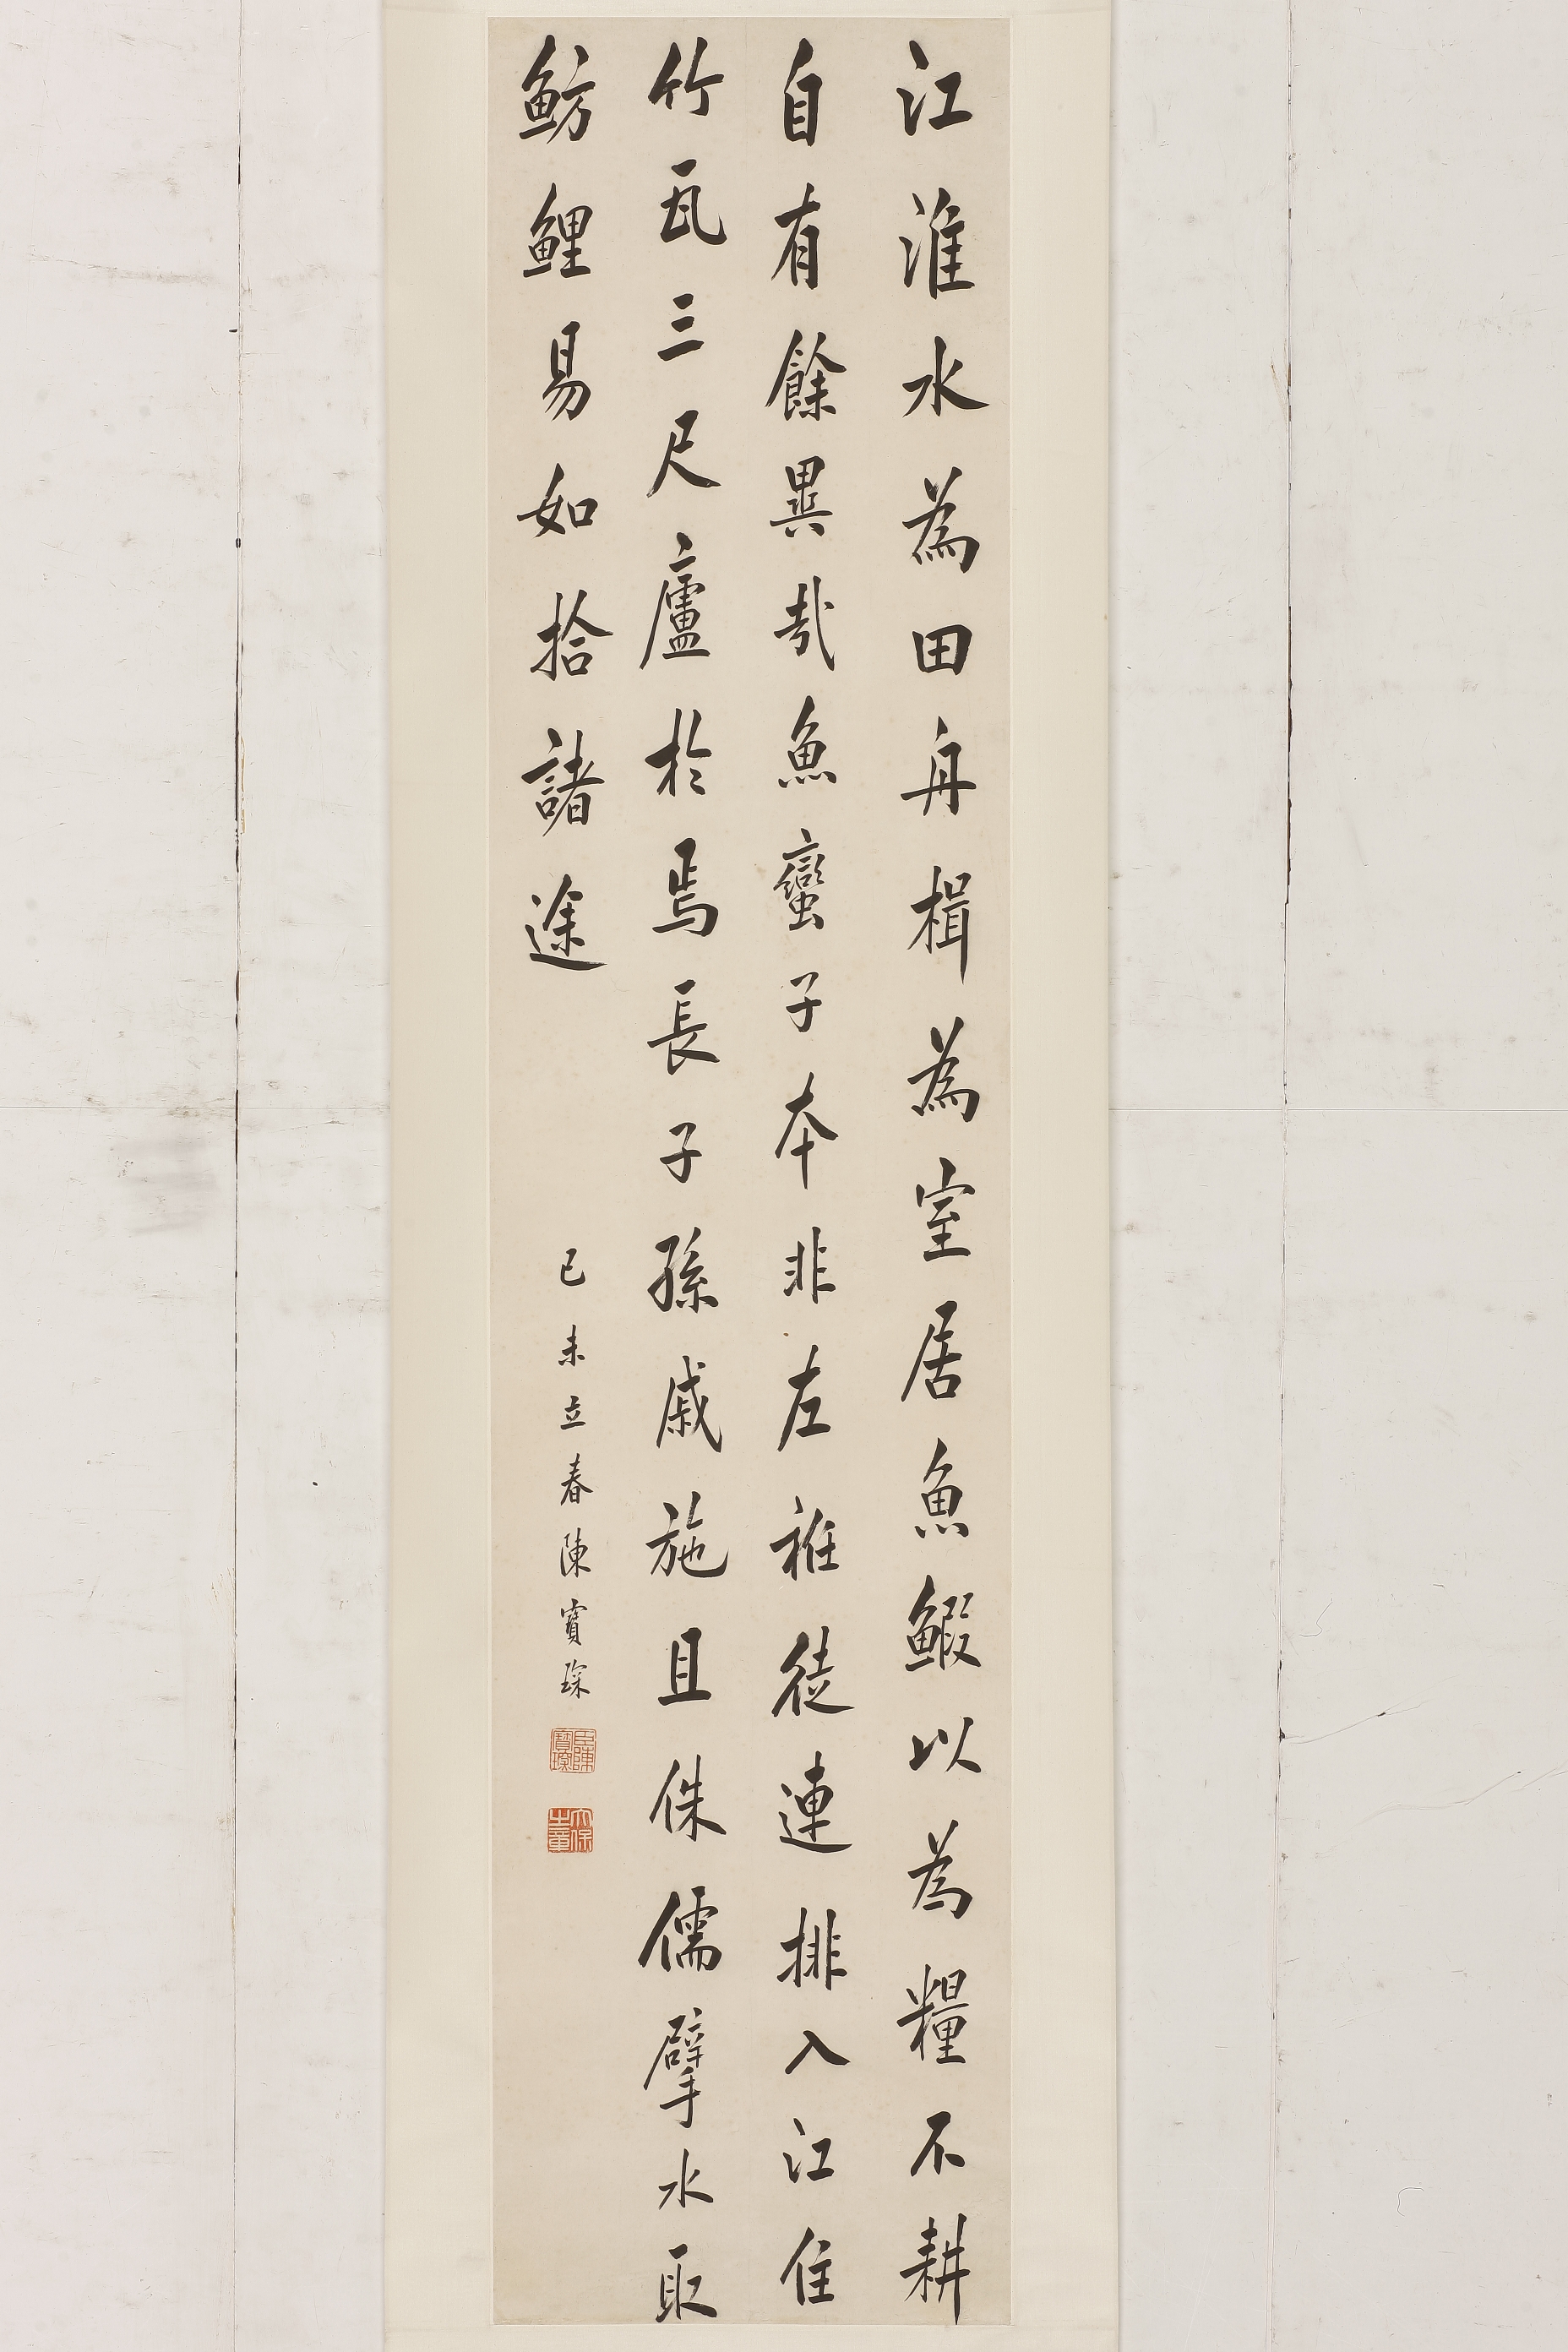 江淮水為田舟楫為室居魚鰕以為糧不耕
自有餘異哉魚蠻子本非左衽徒連排入江住
竹瓦三尺廬於焉長子孫戚施且侏儒擘水取
魴鯉易如拾諸途
己未立春陳寶琛
臣陳寶琛